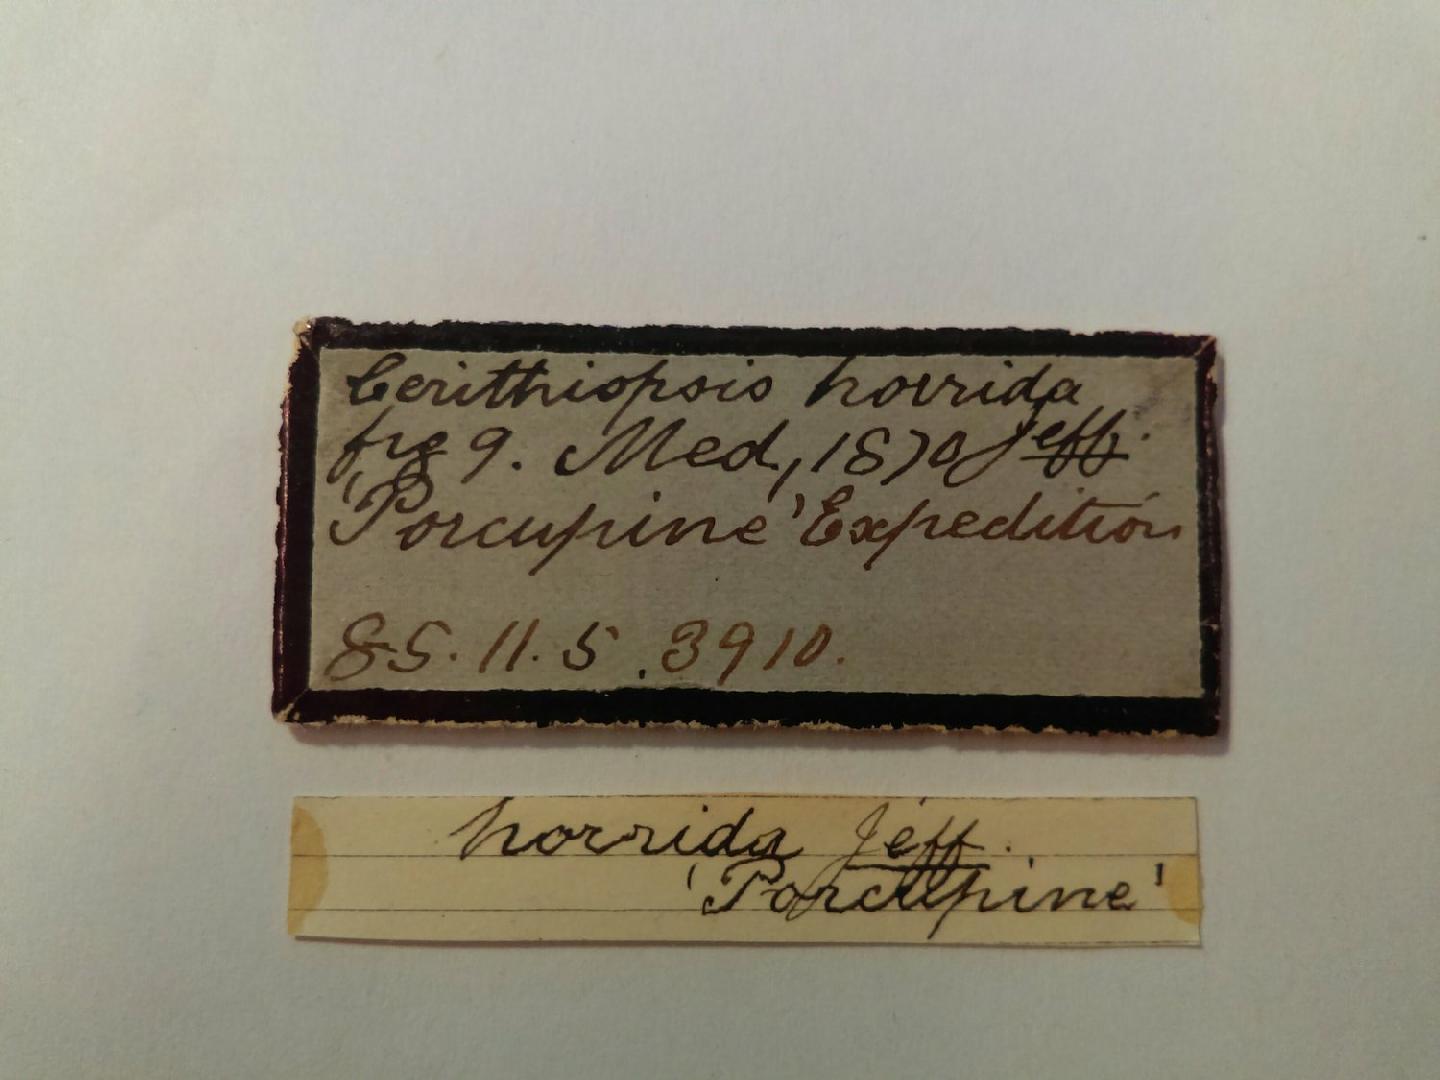 Cerithiopsis horrida
fig 9. Med, 1870 Jeff.
'Porcupine' Expedition
85.11.5.3910.
horrida Jeff.
'Porcupine'